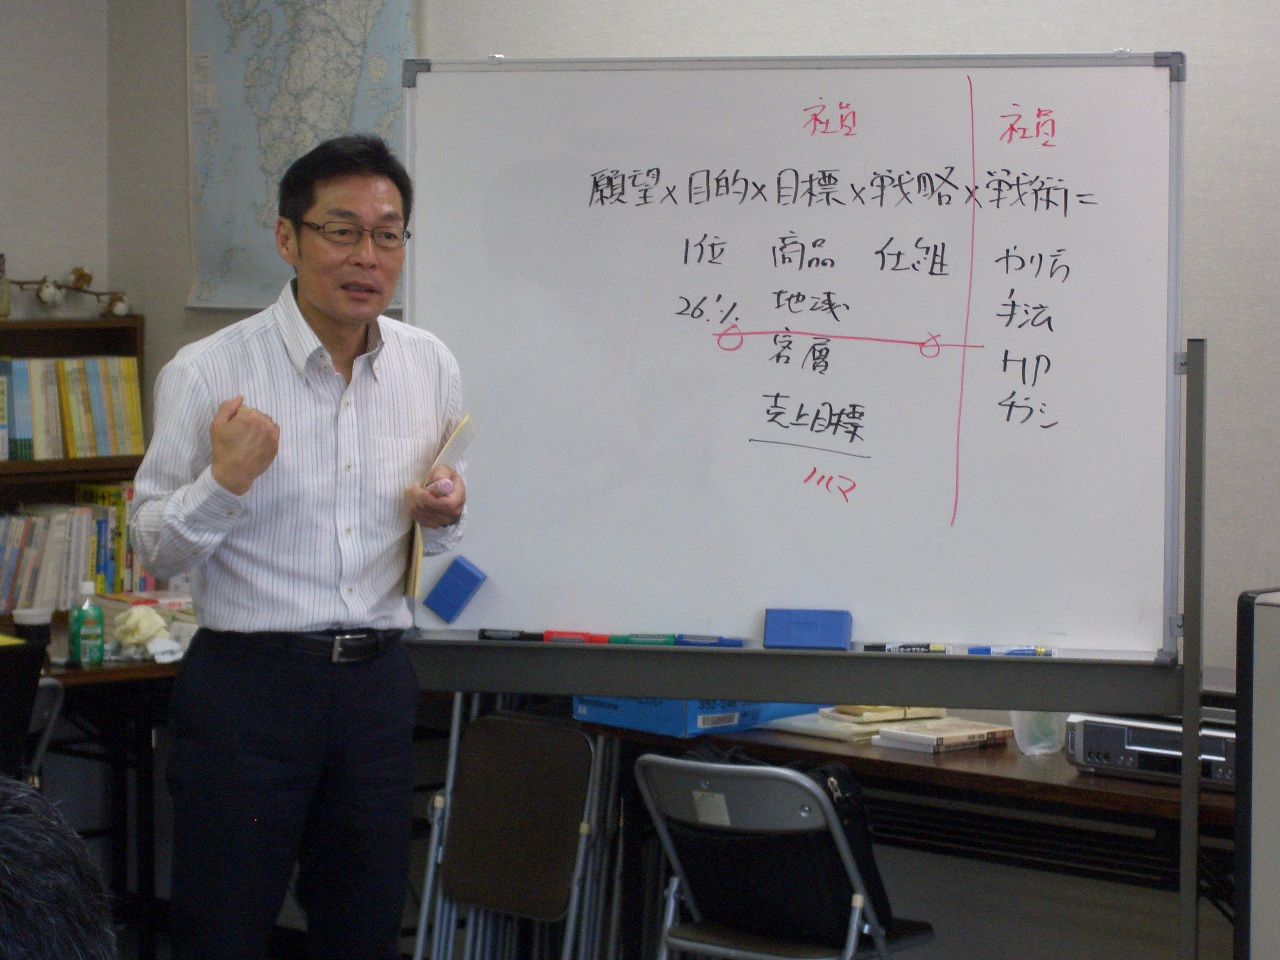 社員 社員
願望×目的×目標×戦略×戦術=
1位 商品 仕組 やり方
26% 地域 手法
客層 HP
売上目標 チラシ